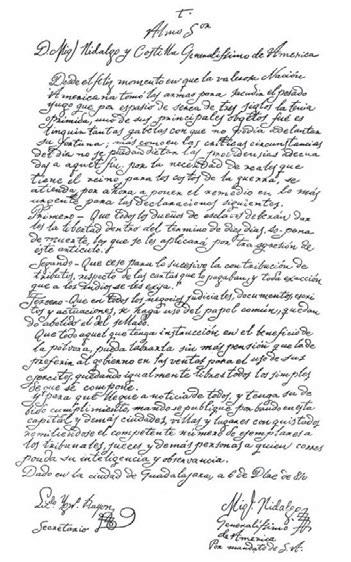 D. Mig.l Hidalgo y Costilla Generalissimo de America
Desde el feliz momento en que la valerosa Nación
Americana tomó las armas para sacudir el pesado
yugo que por espacio de cerca de tres siglos la tenia
oprimida, uno de sus principales objetos fue es
tinguir tantas gabelas con que no podia adelantar
su fortuna; mas como en las criticas circunstancias
del dia no se puedan dictar las providencias adecua
das a aquel fin, por la necesidad de reales que
tiene el reino para los costos de la guerra, se
atienda por ahora a poner el remedio en lo más
urgente para las declaraciones siguientes.
Primero - Que todos los dueños de esclavos deberán dar
les la libertad dentro del termino de diez dias, so pena
de muerte, la que se les aplicará por trasgresión de
este articulo.
Segundo - Que cese para lo sucesivo la contribución de
tributos, respecto de las castas que lo pagaban y toda exacción
que a los indios se les exija.
Tercero - Que en todos los negocios judiciales, documentos, escri
tos y actuaciones, se haga uso del papel común, quedan
do abolido el del sellado.
Que todo aquel que tenga instrucción en el beneficio de
la polvora, pueda labrarla sin más pensión que la de
preferir al gobierno en las ventas para el uso de sus
ejercitos, quedando igualmente libres todos los simples
de que se compone.
Y para que llegue a noticia de todos y tenga su de
bido cumplimiento, mando se publique por bando en esta
capital y demás ciudades, villas y lugares conquistados
remitiendose el competente número de ejemplares a
los tribunales, jueces y demás personas a quien corres
ponda su inteligencia y observancia.
Dado en la ciudad de Guadalajara, a 6 de Dbre de 810
Mig.l Hidalgo
Secretario
Generalissimo
de America
Por mandato de S. A.